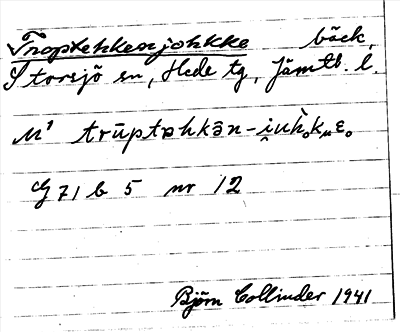 Troptehkenjohkke bäck,
Storsjö sn, Hede tg, Jämtl. l.
M¹ trūptɒhkān-i̯uh̀ₒkᵤεₒ
G 71 b 5 nr 12
Björn Collinder 1941